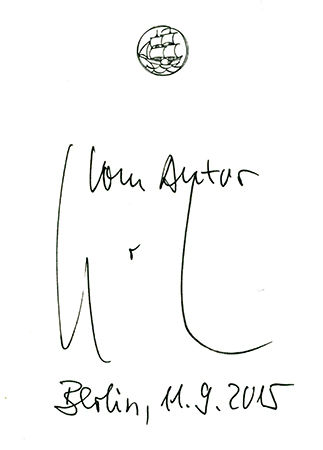 Vom Autor
Berlin, 11.9.2015